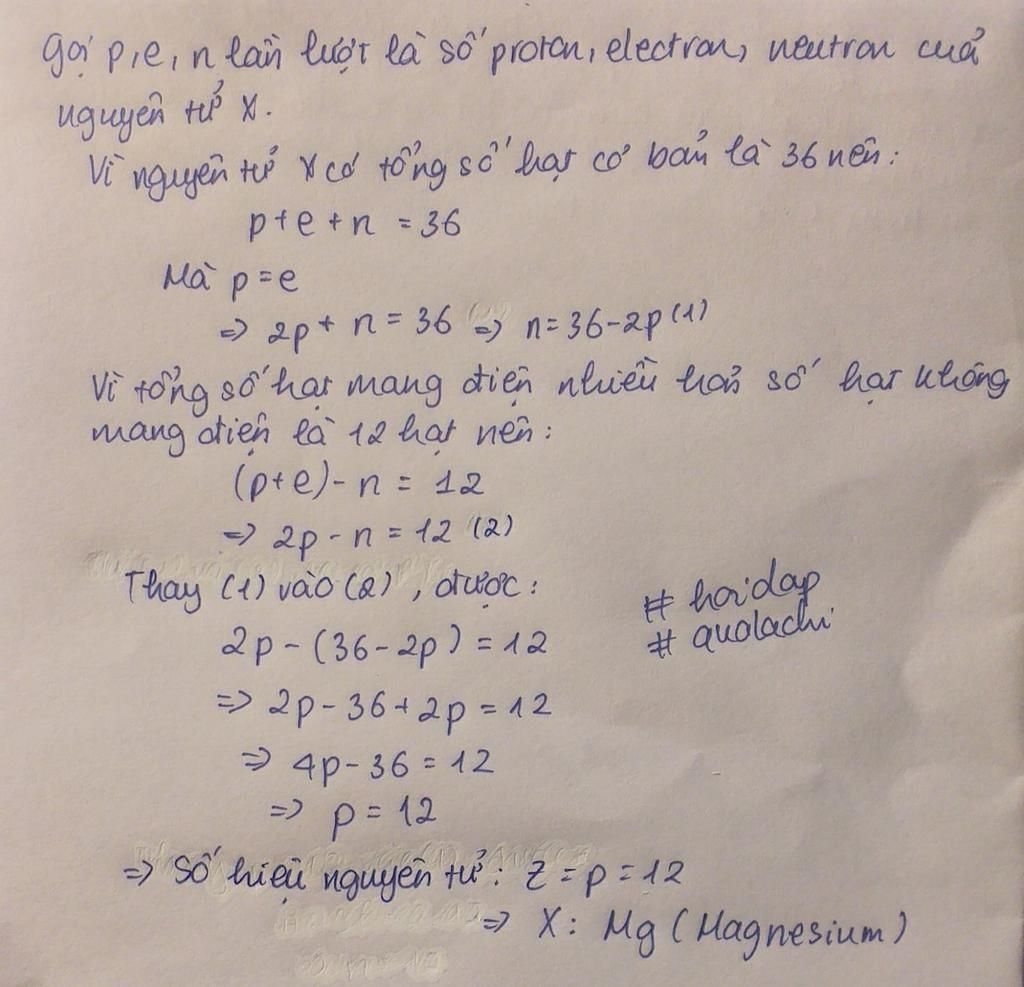 Gọi p, e, n lần lượt là số proton, electron, neutron của
nguyên tử X.
Vì nguyên tử X có tổng số hạt cơ bản là 36 nên:
p + e + n = 36
Mà p = e
=> 2p + n = 36 => n = 36 - 2p (1)
Vì tổng số hạt mang điện nhiều hơn số hạt không
mang điện là 12 hạt nên:
(p + e) - n = 12
=> 2p - n = 12 (2)
Thay (1) vào (2), được:
2p - (36 - 2p) = 12
=> 2p - 36 + 2p = 12
=> 4p - 36 = 12
=> p = 12
# hoidap
# auolachi
=> Số hiệu nguyên tử: Z = p = 12
=> X: Mg (Magnesium)